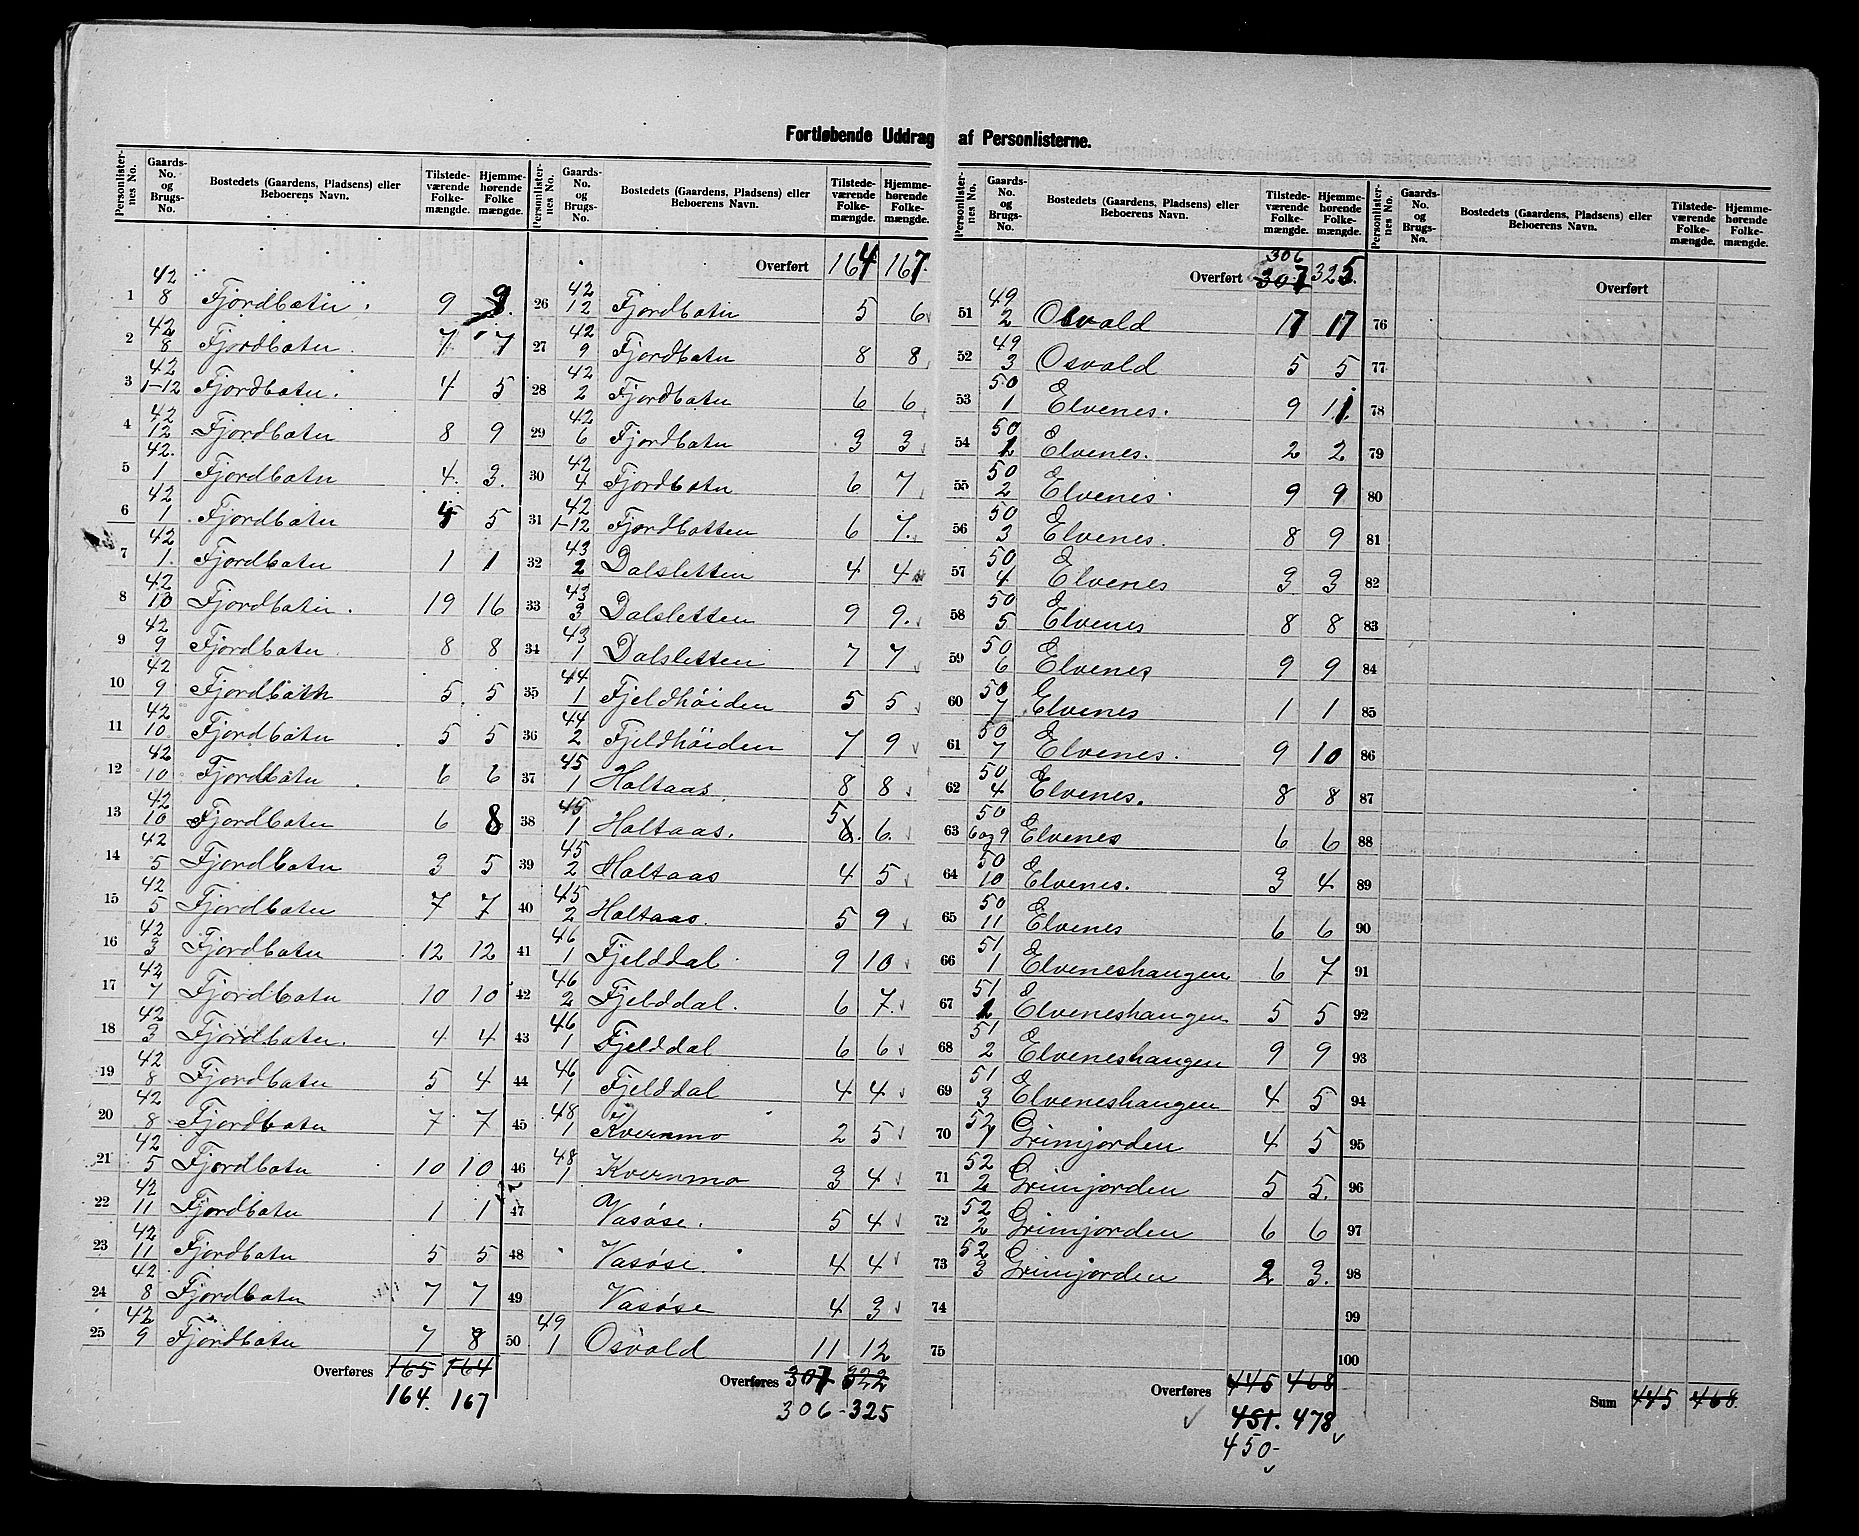 Fortløbende Uddrag af Personlisterne.
Personlister-nes No. | Gaards-No. og Brugs-No. | Bostedets (Gaardens, Pladsens) eller Beboerens Navn. | Tilstede-værende Folke-mængde. | Hjemme-hørende Folke mængde.
1 42/8 Fjordbotn. 9 9.
2 42/8 Fjordbotn. 7 7
3 42/1-12 Fjordbotn. 4 5
4 42/12 Fjordbotn 8 9
5 42./1 Fjordbotn 4. 3.
6 42/1 Fjordbotn 5
7 42/1. Fjordbotn 1 1
8 42/10 Fjordbotn. 19 16
9 42/9 Fjordbotn. 8 8
10 42/9 Fjordbotn 5. 5
11 42/10 Fjordbotn 5 5
12 42/10 Fjordbotn. 6 6
13 42/10 Fjordbotn 6 8
14 42/5 Fjordbotn 3 5
15 42/5 Fjordbotn 7 7
16 42/3 Fjordbotn 12 12
17 42/7 Fjordbotn 10 10
18 42/3 Fjordbotn. 4 4
19 42/8 Fjordbotn 5 4
20 42/8 Fjordbotn 7 7
21 42/5 Fjordbotn 10 10
22 42/11 Fjordbotn 1 1
23 42/11 Fjordbotn 5 5
24 42/8 Fjordbotn 7 7
25 42/9 Fjordbotn 7 8
Overføres 165 164
164. 167
Personlister-nes No. | Gaards-No. og Brugs-No. | Bostedets (Gaardens, Pladsens) eller Beboerens Navn. | Tilstede-værende Folke-mængde. | Hjemme-hørende Folke-mængde.
Overført 164 167.
26 42/12 Fjordbotn 5 6
27 42/9 Fjordbotn 8 8
28 42/2 Fjordbotn 6 6
29 42/6 Fjordbotn 3 3
30 42/4 Fjordbotn 6 7
31 42/1-12 Fjordbotten 6 7.
32 43/2 Dalsletten 4 4
33 43/3 Dalsletten 9 9.
34 43/1 Dalsletten 7 7
35 44/1 Fjeldhöiden 5 5
36 44/2 Fjeldhöiden 7 9
37 45/1 Holtaas. 8 8
38 45/1 Holtaas. 5 6. 6.
39 45/2 Holtaas 4 5
40 45/2 Holtaas. 5 9
41 46/1 Fjelddal. 9 10
42 46/2 Fjelddal. 6 7.
43 46/1 Fjelddal 6 6
44 46/1 Fjelddal 4 4
45 48/1 Kvernmo 2 5
46 48/1 Kvernmo 3 4
47 Vasøse. 5 4
48 Vasøse. 4 4
49 Vasøse 4 3
50 49/1 Osvald 11 12
Overføres 307 322
306 - 325
Personlister-nes No. | Gaards-No. og Brugs-No. | Bostedets (Gaardens, Pladsens) eller Beboerens Navn. | Tilstede-værende Folke-mængde. | Hjemme-hørende Folke-mængde.
306
Overført 307 325.
51 49/2 Osvald 17 17
52 49/3 Osvald 5 5
53 50/1 Elvenes. 9 11.
54 50/1 Elvenes. 2 2
55 50/2 Elvenes 9 9
56 50/3 Elvenes. 8 9
57 50/4 Elvenes 3 3
58 50/5 Elvenes 8 8
59 50/6 Elvenes 9 9
60 50/7 Elvenes 1 1
61 50/7 Elvenes. 9 10
62 50/4 Elvenes. 8 8
63 50/6 og 9 Elvenes 6 6
64 50/10 Elvenes. 3 4
65 50/11 Elvenes 6 6
66 51/1 Elveneshaugen 6 7
67 51/1 Elveneshaugen 5 5
68 51/2 Elveneshaugen 9 9
69 51/3 Elveneshaugen 4 5
70 52/1 Grimjorden 4 5
71 52/2 Grimjorden 5 5.
72 52/2 Grimjorden 6 6
73 52/3 Grimjorden 2 3.
74
75
Overføres 445 468
451. 478
450-
Personlister-nes No. | Gaards-No. og Brugs-No. | Bostedets (Gaardens, Pladsens) eller Beboerens Navn. | Tilstede-værende Folke-mængde. | Hjemme-hørende Folke-mængde.
Overført
76
77
78
79
80
81
82
83
84
85
86
87
88
89
90
91
92
93
94
95
96
97
98
99
100
Sum 445 468.